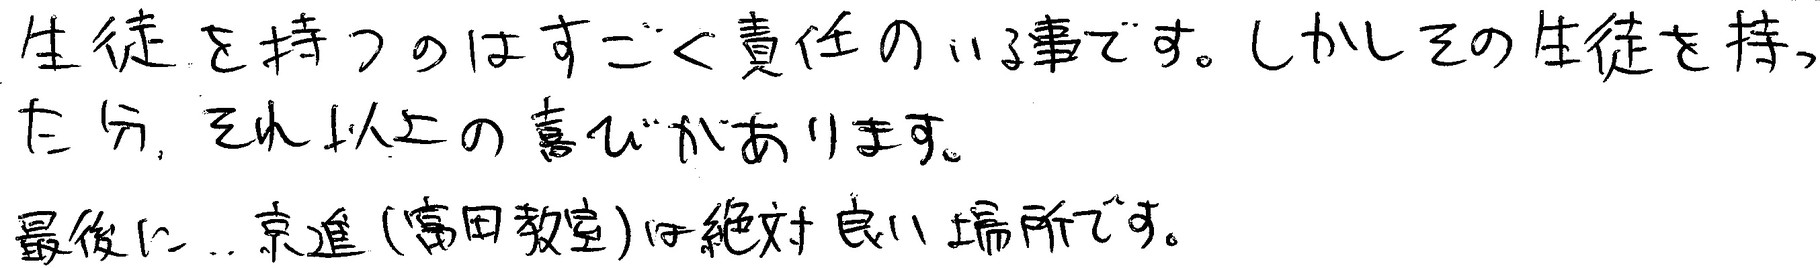 生徒を持つのはすごく責任のいる事です。しかしその生徒を持っ
た分、それ以上の喜びがあります。
最後に...京進(富田教室)は絶対良い場所です。